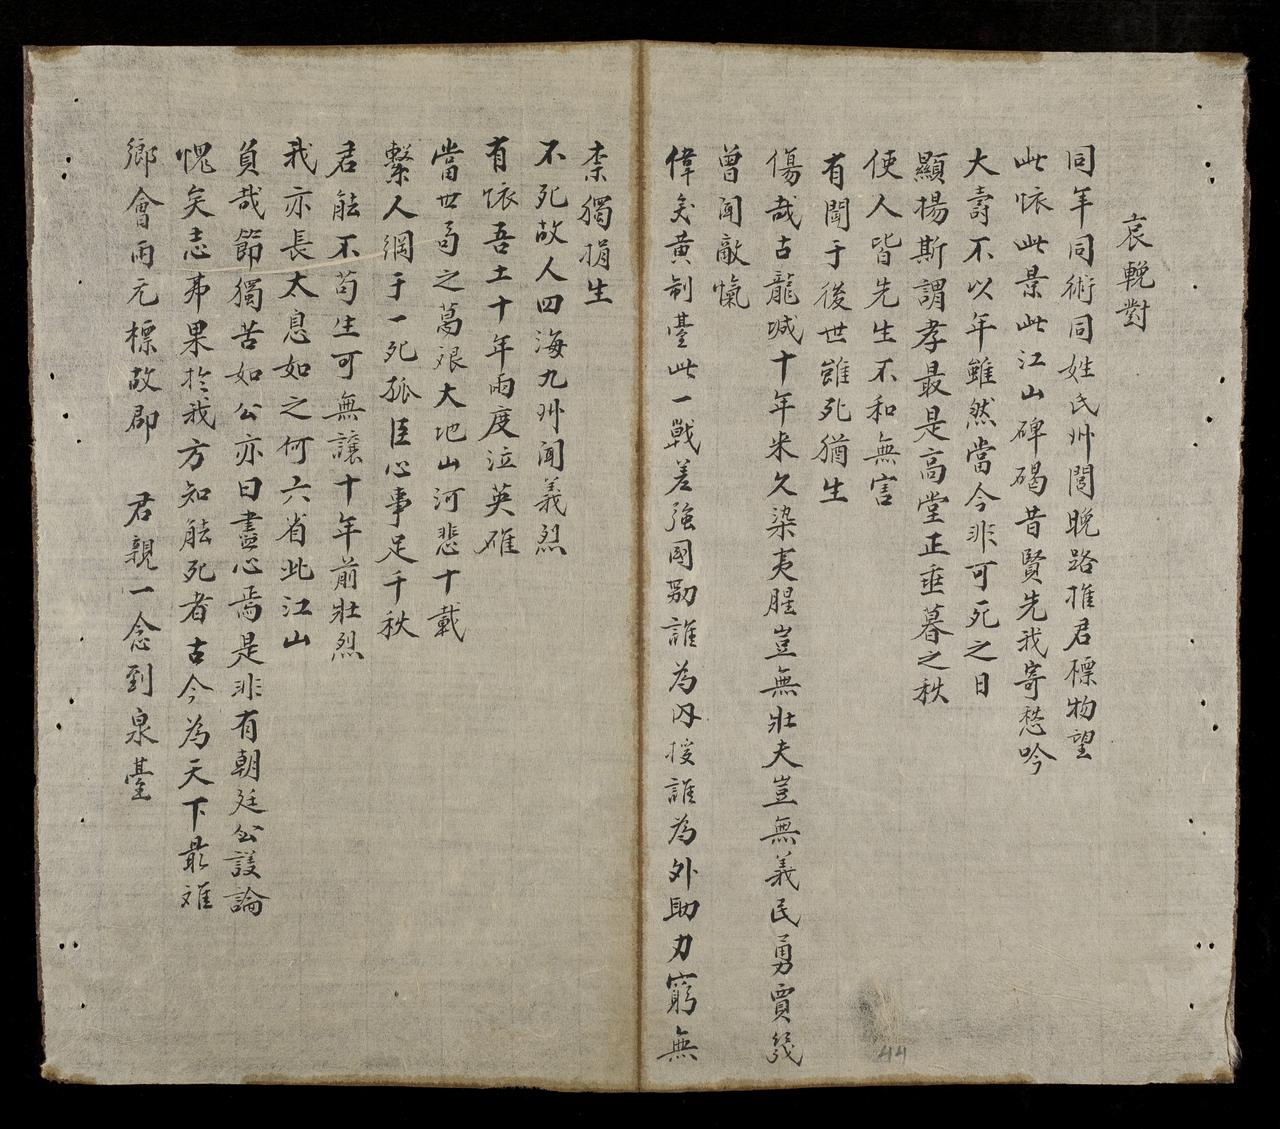 哀輓對
同年同術同姓氏州閭晚路推君標物望
此懷此景此江山碑碣昔賢先我寄愁吟
大壽不以年雖然當今非可死之日
顯揚斯謂孝最是高堂正垂暮之秋
使人皆先生不和無害
有聞于後世雖死猶生
傷哉古龍城十年來久染夷腥豈無壯夫豈無義民勇賈幾
曾聞敵愾
偉矣黃制臺此一戰差強國勢誰為內援誰為外助力窮無
柰獨捐生
不死故人四海九州聞義烈
有懷吾土十年兩度泣英雄
當世局之葛艱大地山河悲十載
繫人綱于一死孤臣心事足千秋
君能不苟生可無讓十年前壯烈
我亦長太息如之何六省此江山
負哉節獨苦如公亦曰盡心焉是非有朝廷公議論
愧矣志弗果於我方知能死者古今為天下最難
鄉會兩元標故郡 君親一念到泉臺
44